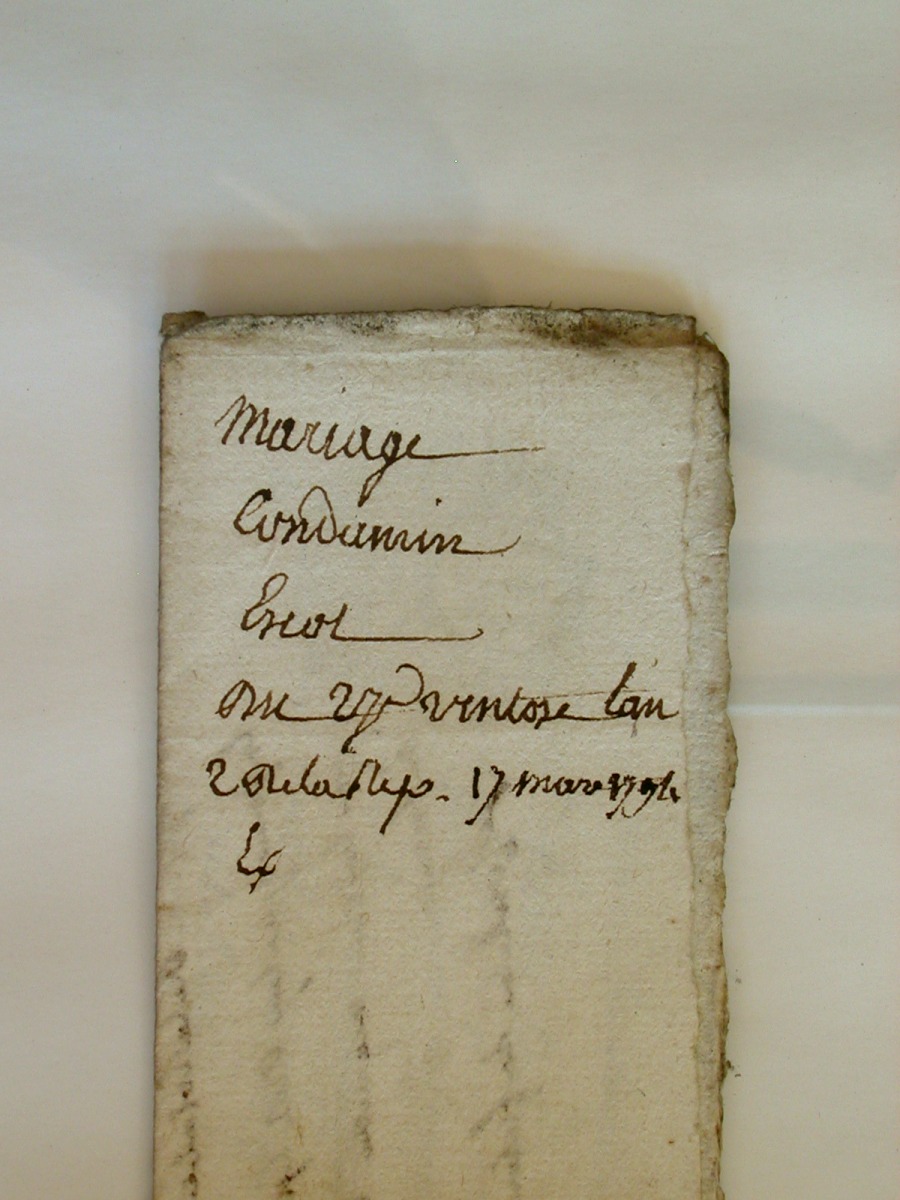 Mariage
Condamin
Escot
Du 27e ventose l'an
2 de la Rep. 17 mars 1794